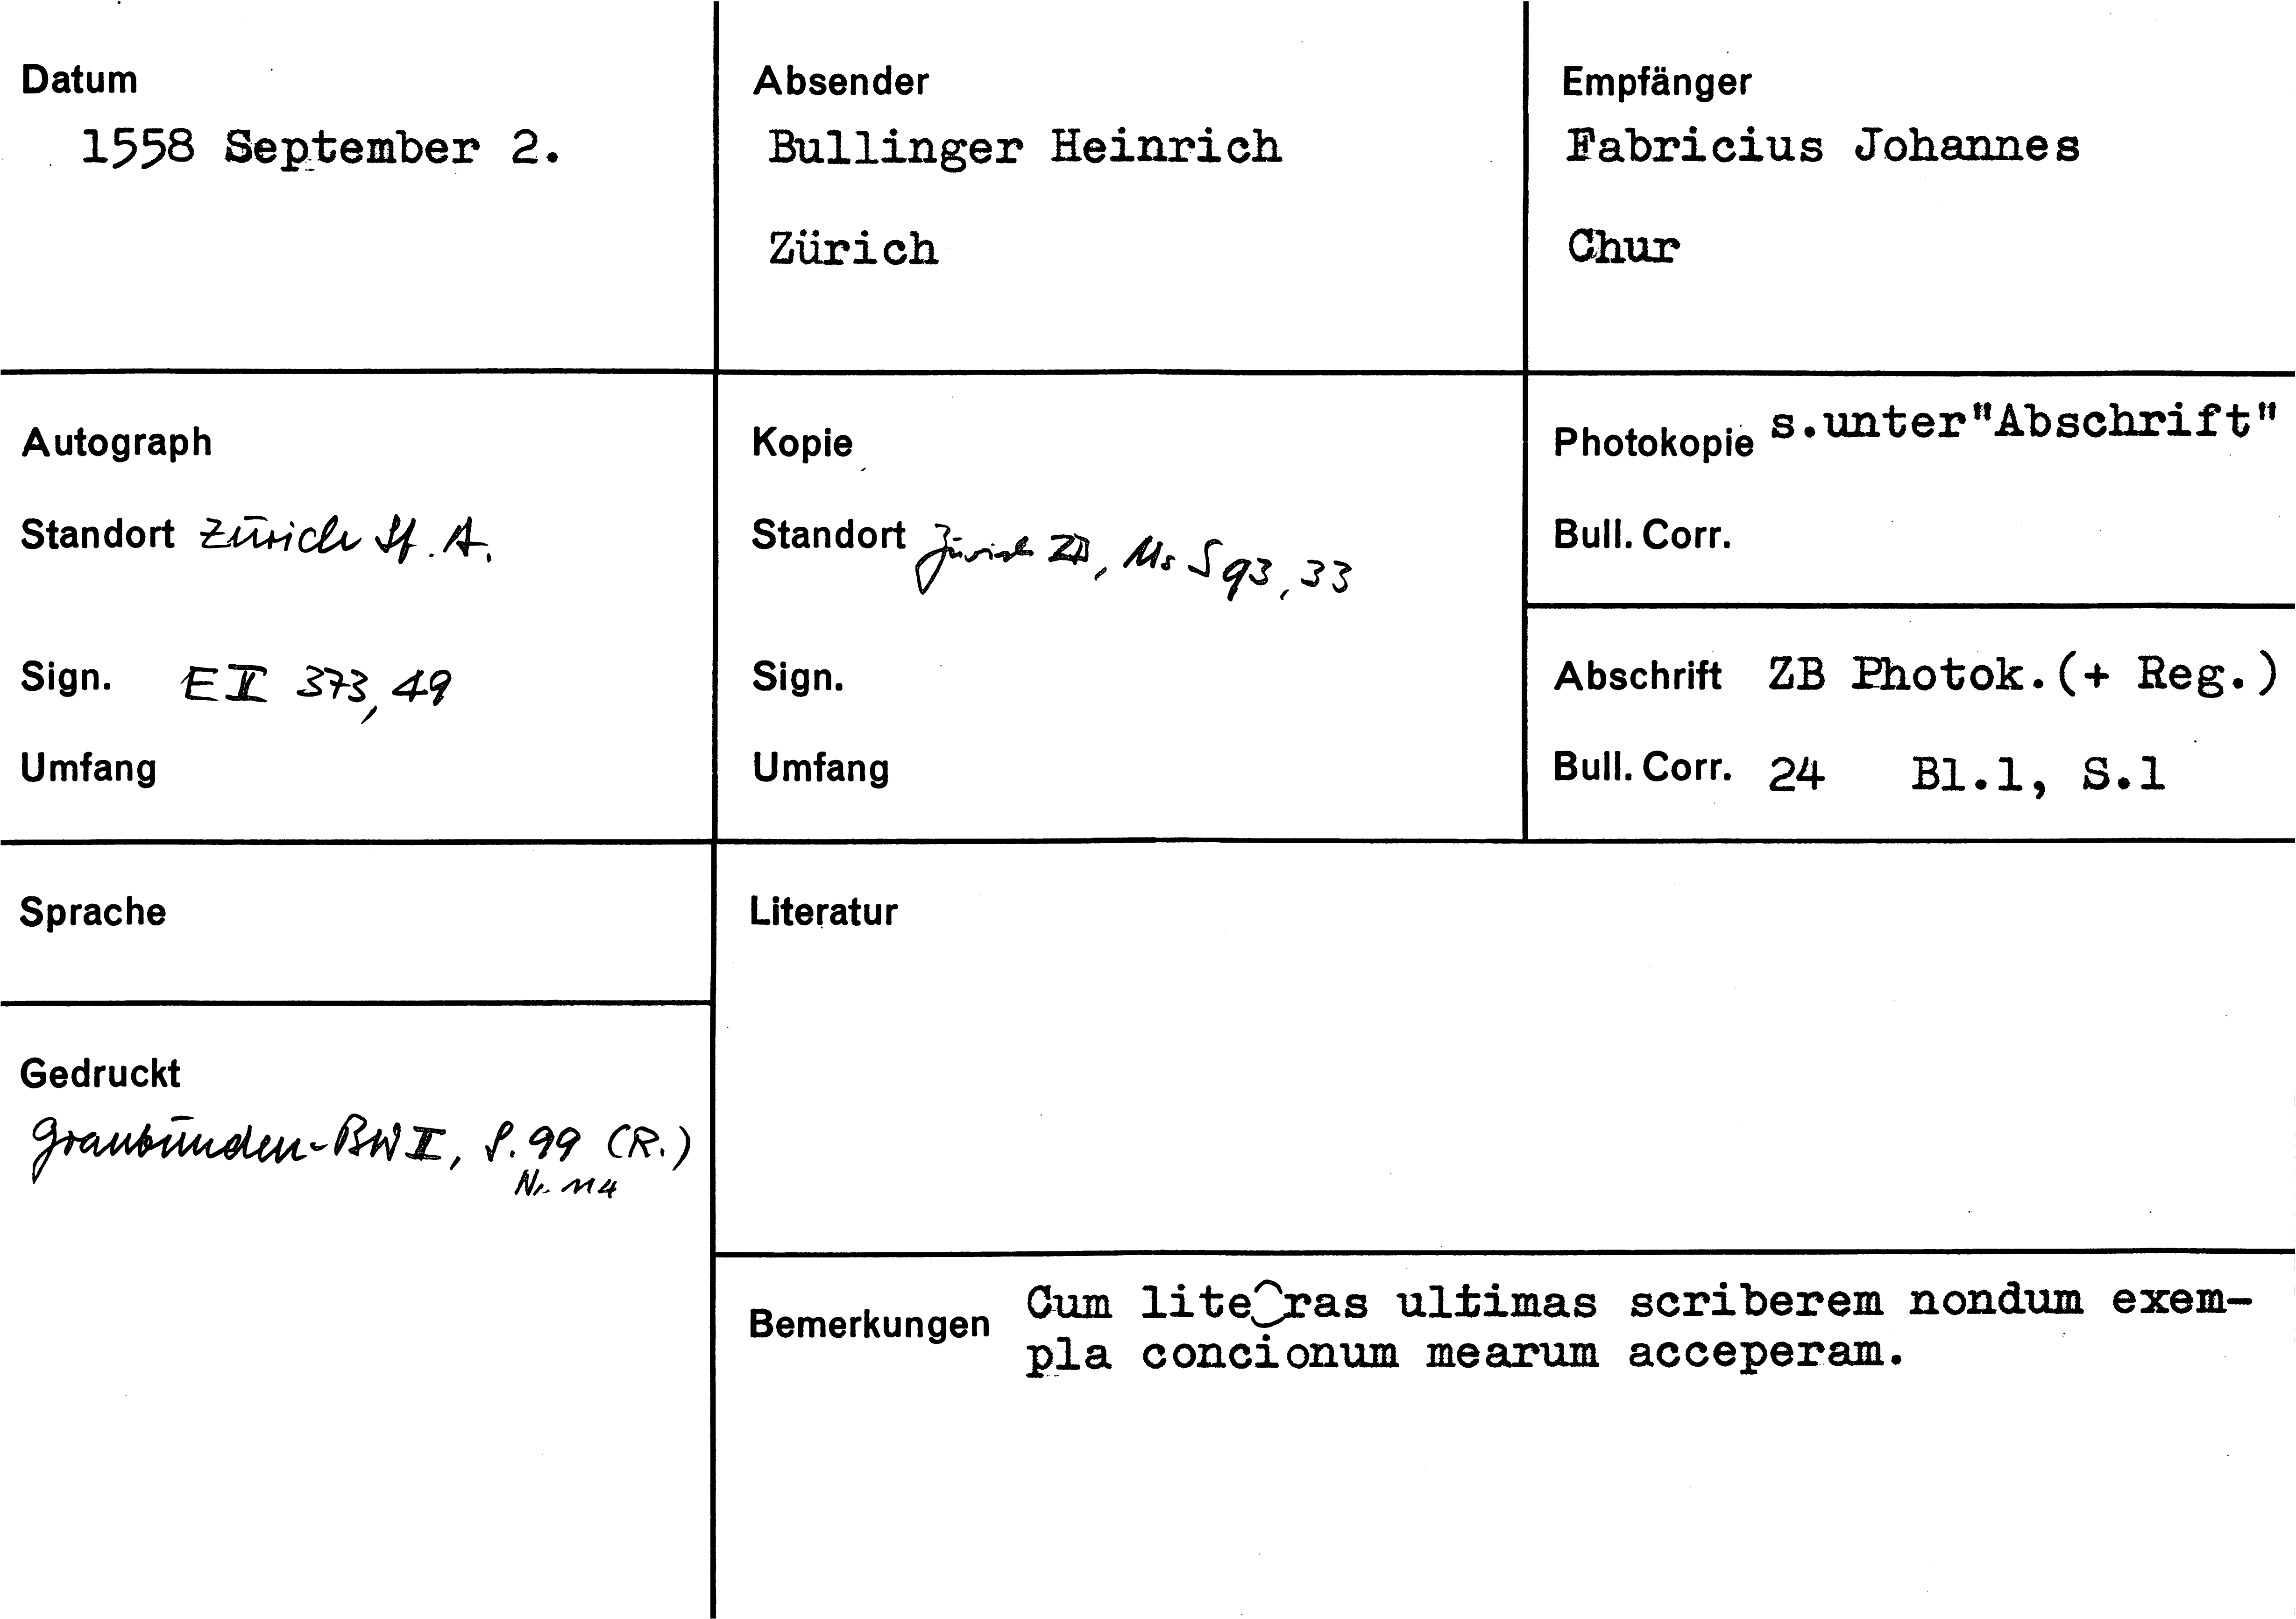 Datum
1558 September 2.
Absender
Bullinger Heinrich
Zürich
Empfänger
Fabricius Johannes
Chur
Autograph
Standort Zürich St. A.
Sign. E II 373, 49
Umfang
Kopie
Standort Zürich ZB, Ms S 93, 33
Sign.
Umfang
Photokopie s.unter"Abschrift"
Bull. Corr.
Abschrift ZB Photok.(+ Reg.)
Bull. Corr. 24 Bl.1, S.1
Sprache
Gedruckt
Graubünden-BW II, S. 99 (R.)
Nr. 114
Literatur
Bemerkungen Cum literas ultimas scriberem nondum exem-
pla concionum mearum acceperam.